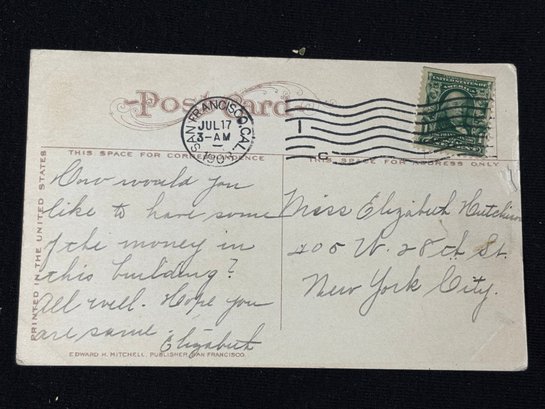 Post Card
SAN FRANCISCO, CAL.
JUL 17
3-AM
190
UNITED STATES OF AMERICA
THIS SPACE FOR CORRESPONDENCE
How would you
like to have some
of the money in
this building?
All well. Hope you
are same. Elizabeth
THIS SPACE FOR ADDRESS ONLY
Miss Elizabeth Hutchison
205 W. 28th St.
New York City.
PRINTED IN THE UNITED STATES
EDWARD H. MITCHELL, PUBLISHER, SAN FRANCISCO.